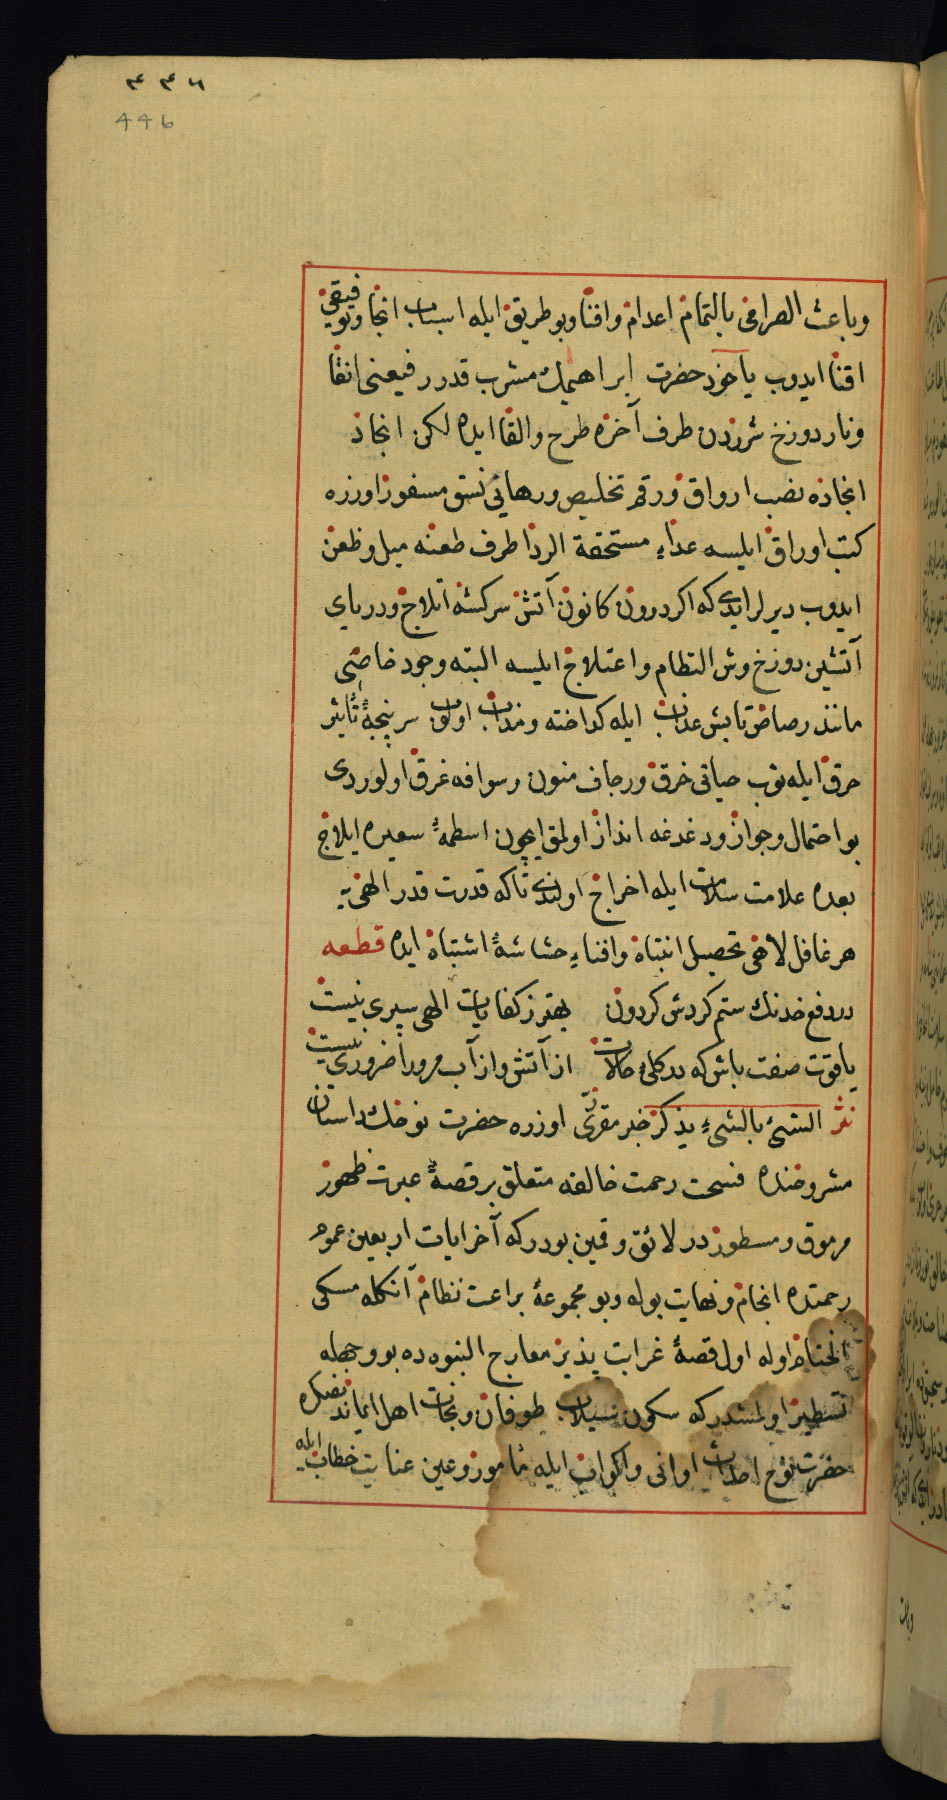 ٤٤٦
446
وباعث الصرافى بالتمام اعدام وافنا وبو طريق ايله اسباب انجا وتوفيقى
اقنا ايدوب ياخود حضرت ابراهيمك مشرب قدر رفيعنى انقا
ونار دوزخ شرردن طرف آخره طرح والقا ايده لكن انجاذ
انجاذه نصب ارواق ورقم تخليص ورهايى نسق مسفور اوزره
كتب اوراق ايليسه عداء مستحقة الردا طرف طعنه ميل وظعن
ايدوب ديرلر ايدى كه اكر درون كانون آتش سركشه اتلاج ودرياى
آتشين دوزخ وش التظام واعتلاج ايليسه البته وجود خاصى
مانند رصاص تابش عذاب ايله كداخته ومذاب اولوب سرپنجهٔ تأثير
حرق ايله ثوب حياتى خرق ورجاف منون رسوافه غرق اولوردى
بو احتمال وجواز ودغدغه انداز اولمق ايچون اسطمهٔ سعيره ايلاج
بعده علامت سلامت ايله اخراج اولندى تاكه قدرت قدر الهى يه
هر غافل لاهى تحصيل انتباه وافناء حشاشهٔ اشتباه ايده قطعه
در دفع خدنك ستم كردش كردون بهتر ز كفايات الهى سپرى نيست
ياقوت صفت باش كه در كلئ حالات از آتش و از آب مرورا ضررى نيست
نثر الشئ بالشئ يذكر خبر مقررى اوزره حضرت نوحك داستان
مشروحنده فسحت رحمت خالقه متعلق بر قصهٔ عبرت ظهور
مرموق ومسطور در لائق وقمين بودر كه آخر ايات اربعين عموم
رحمتده انجام ونهايت بوله وبو مجموعهٔ براعت نظام آنكله مسكى
الختام اوله اول قصهٔ غرابت پذير معارج النبوه ده بو وجهله
تسطير اولمشدر كه سكون سيلاب طوفان ونجات اهل ايماندنصكره
حضرت نوح احداث اوانى واكواب ايله مأمور وعين عنايت خطاب ايله